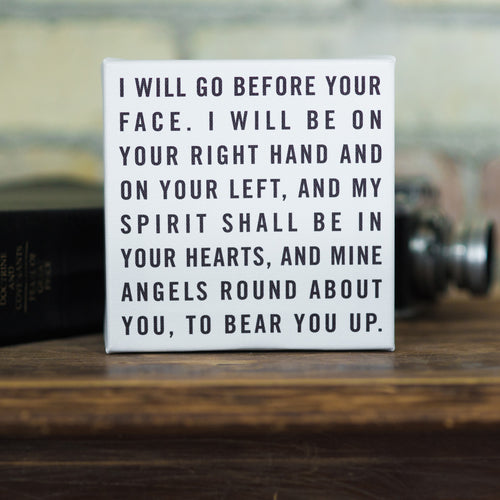 I WILL GO BEFORE YOUR
FACE. I WILL BE ON
YOUR RIGHT HAND AND
ON YOUR LEFT, AND MY
SPIRIT SHALL BE IN
YOUR HEARTS, AND MINE
ANGELS ROUND ABOUT
YOU, TO BEAR YOU UP.
DOCTRINE
AND
COVENANTS
PEARL OF
GREAT
PRICE